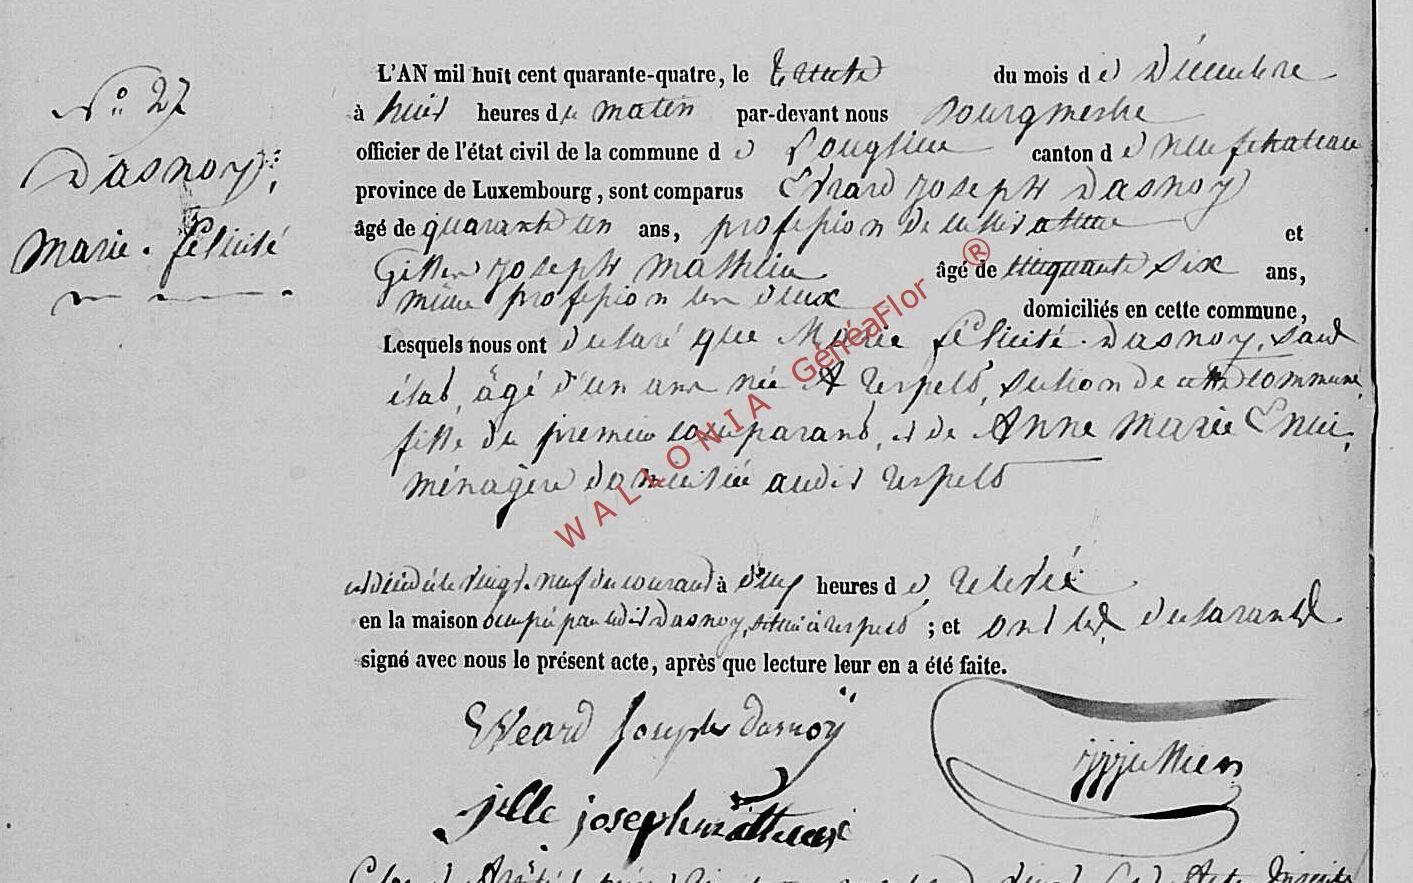 N° 27
Dasnoy,
Marie-félicité
L'AN mil huit cent quarante-quatre, le trente du mois de Décembre
à huit heures du matin par-devant nous Bourgmestre
officier de l'état civil de la commune de Longlier canton de neufchateau
province de Luxembourg, sont comparus Evrard Joseph Dasnoy
âgé de quarante un ans, profession de cultivateur et
Gille Joseph Mathieu âgé de cinquante six ans,
même profession tous deux domiciliés en cette commune,
Lesquels nous ont déclaré que Marie félicité Dasnoy, sans
état, âgé d'un ans née A respelt, section de cette commune,
fille du premier comparant, et de Anne Marie
ménagère domiciliée audit respelt
et décédé le vingt-neuf du courant à heures de relevée
en la maison occupée par ledit Dasnoy, située à respelt ; et ont les déclarants
signé avec nous le présent acte, après que lecture leur en a été faite.
Evrard Joseph Dasnoy
jille joseph mathieu
WALLONIA GénéaFlor ®